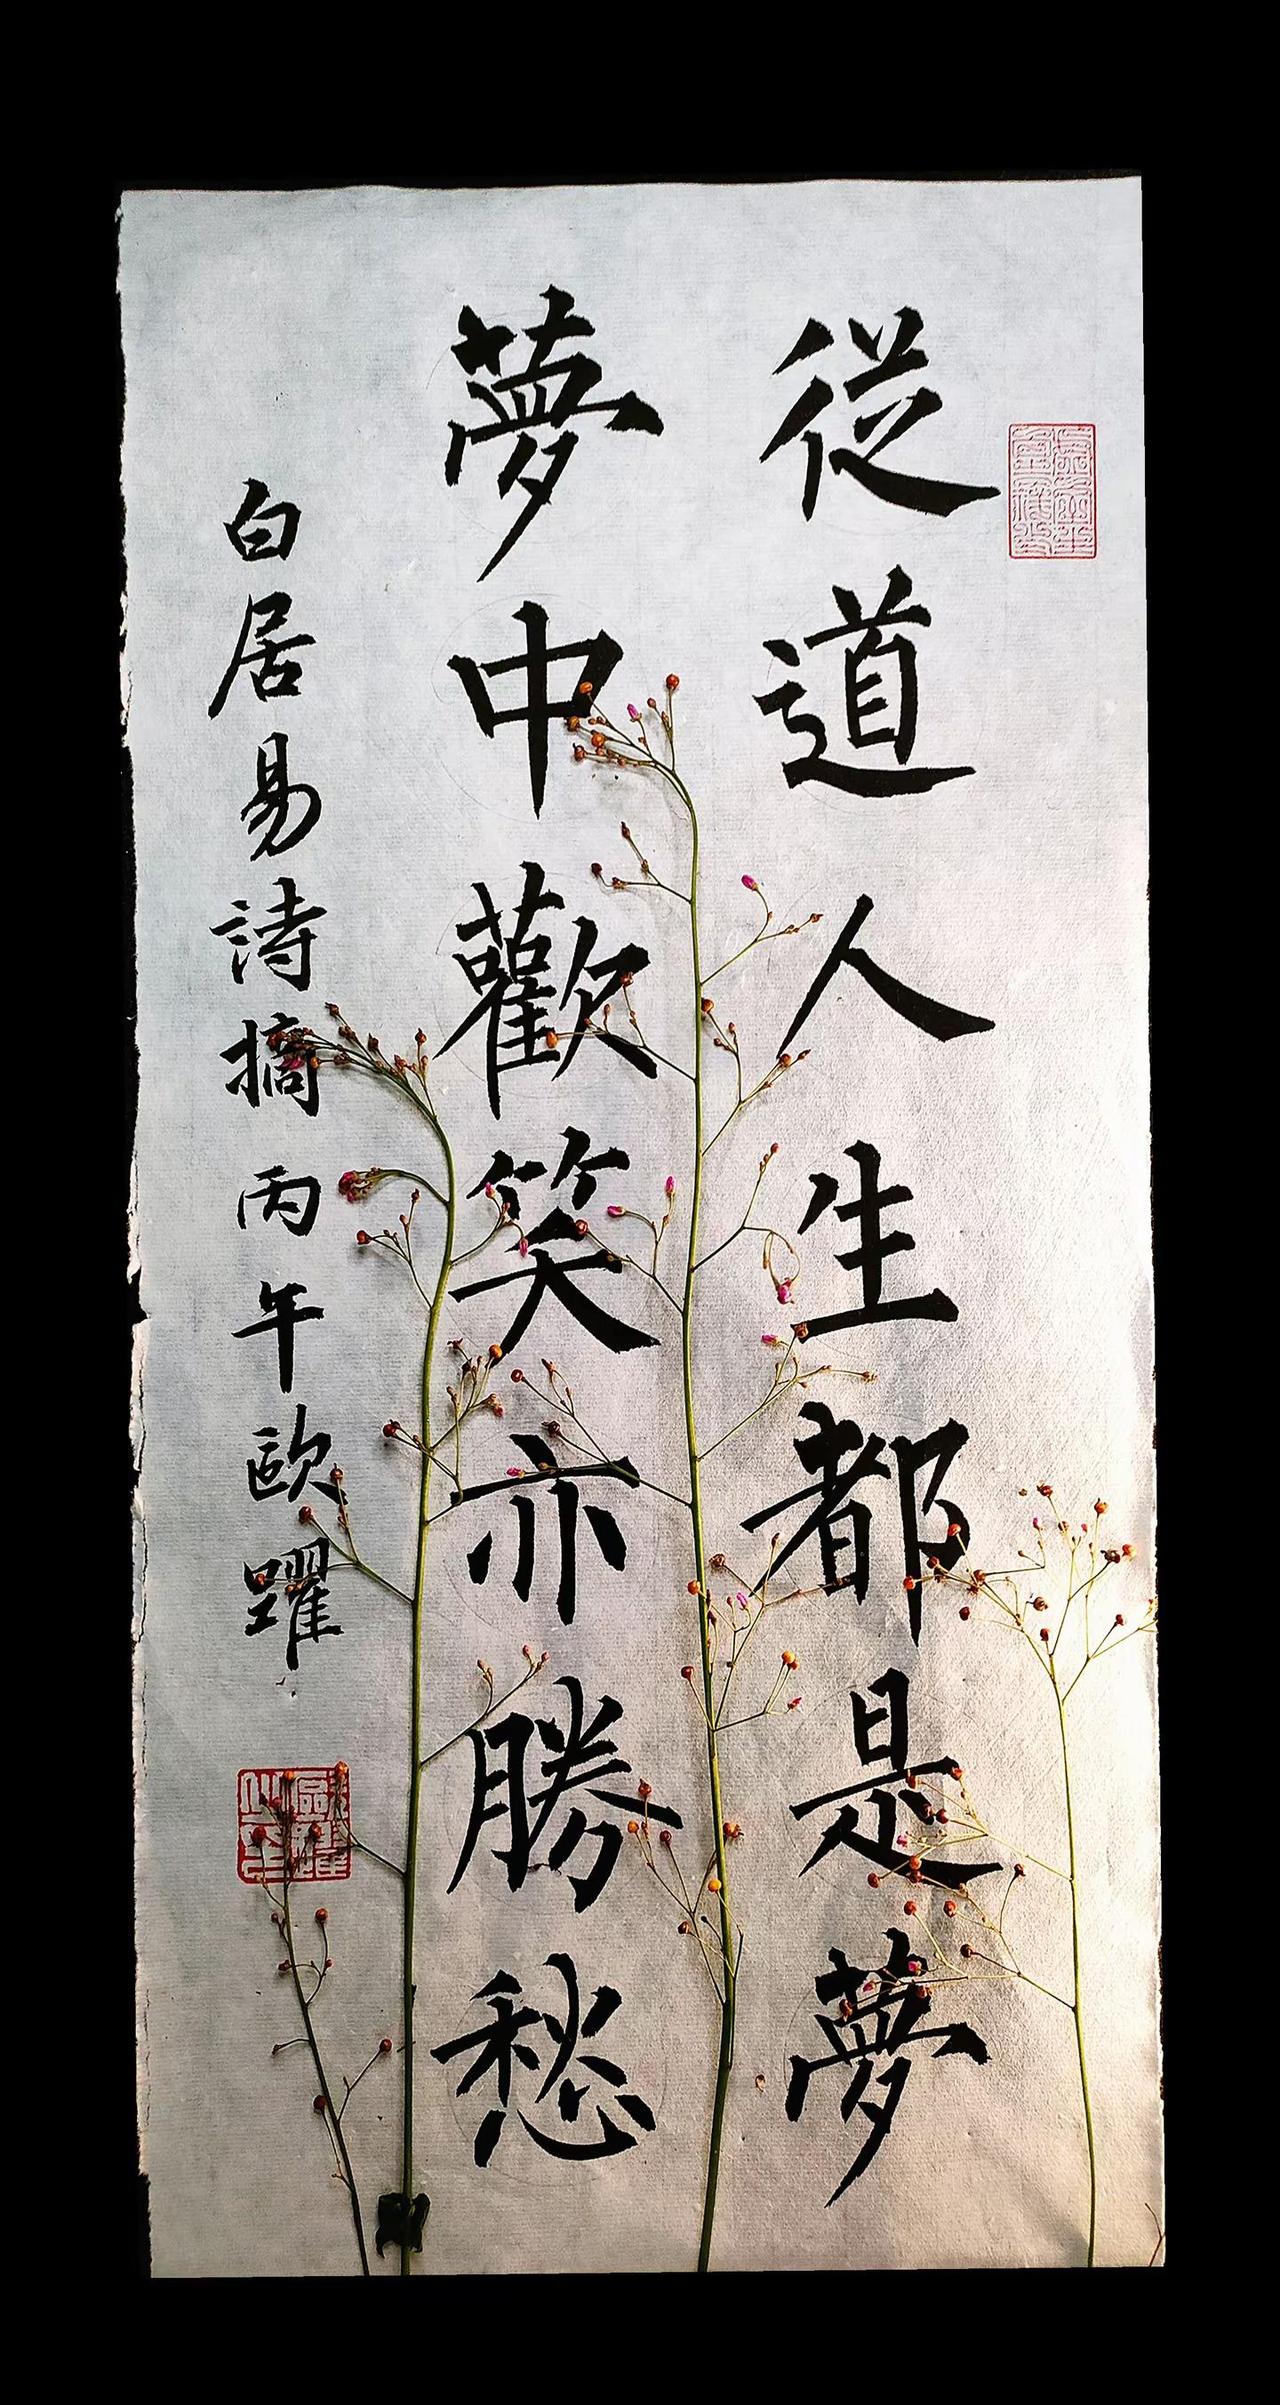 從道人生都是夢
夢中歡笑亦勝愁
白居易詩摘丙午歐躍